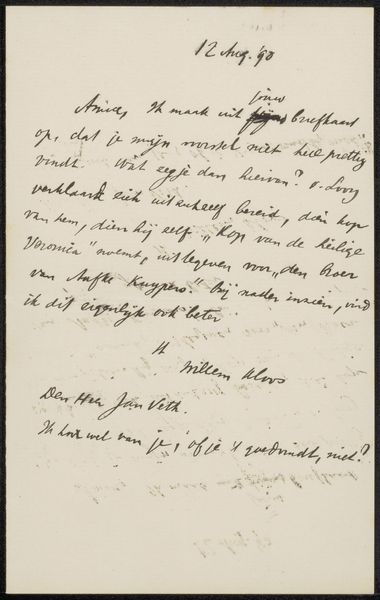 12 Aug. '90
jouw
Amice, Ik maak uit briefkaart
op, dat je mijn voorstel niet heel prettig
vindt. Wat zeg je dan hiervan? v. Looy
verklaard zich uitenheel bereid, dien kop
van hem, dien hij zelf "Kop van de heilige
Veronica" noemt, uit te geven voor "den broer
van Aafke Kuypers." Bij nader inzien, vind
ik dit eigenlijk ook beter
tt
Willem Kloos
Den Heer Jan Veth.
Ik hoor wel van je, of je 't goedvindt, niet?